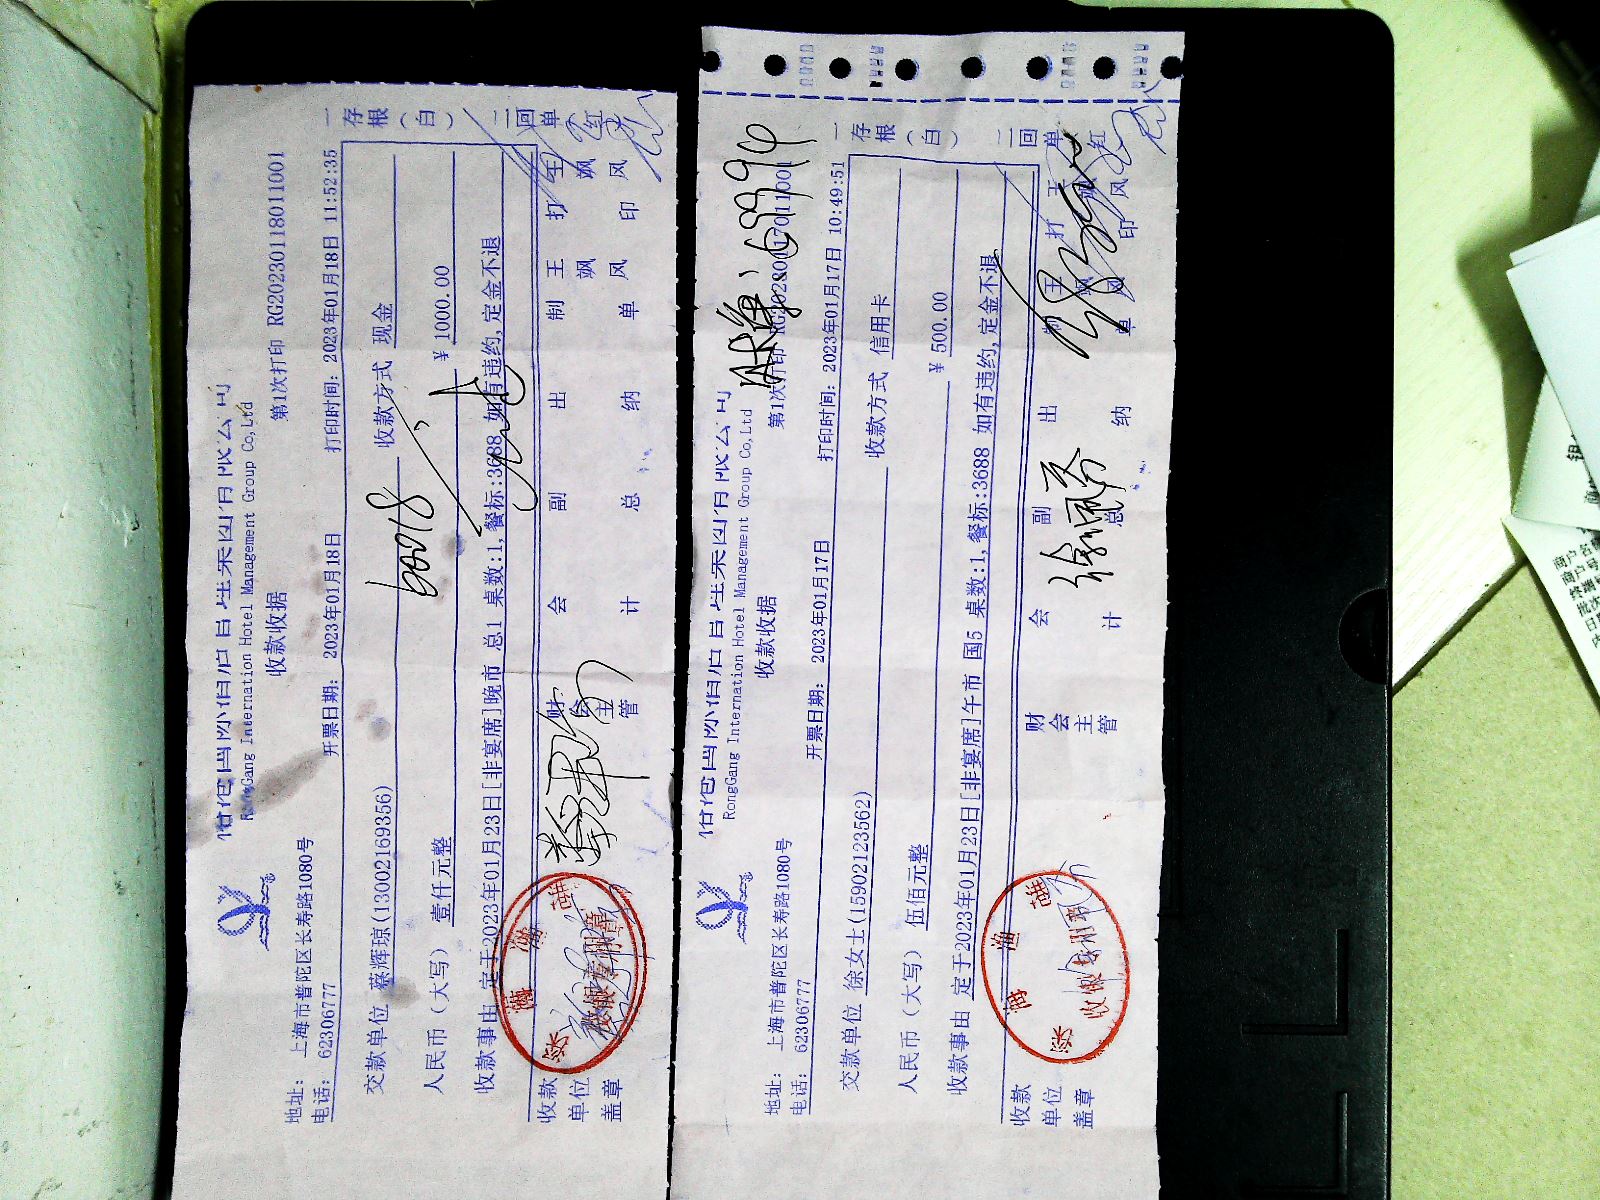 RongGang Internation Hotel Management Group Co,Ltd
收款收据
第1次打印 RG20230118011001
地址: 上海市普陀区长寿路1080号
电话: 62306777
开票日期: 2023年01月18日
打印时间: 2023年01月18日 11:52:35
交款单位 蔡辉琼(13002169356)
收款方式 现金
人民币(大写) 壹仟元整
¥ 1000.00
收款事由 定于2023年01月23日[非宴席]晚市 总1 桌数:1,餐标:3688 如有违约,定金不退
收款单位盖章
财会主管
会计
副总
出纳
制单
王飒风
打印
王飒风
一存根(白)
二回单(红)
RongGang Internation Hotel Management Group Co,Ltd
收款收据
第1次打印
地址: 上海市普陀区长寿路1080号
电话: 62306777
开票日期: 2023年01月17日
打印时间: 2023年01月17日 10:49:51
交款单位 徐女士(15902123562)
收款方式 信用卡
人民币(大写) 伍佰元整
¥ 500.00
收款事由 定于2023年01月23日[非宴席]午市 国5 桌数:1,餐标:3688 如有违约,定金不退
收款单位盖章
财会主管
会计
副总
出纳
制单
王飒风
打印
王飒风
一存根(白)
二回单(红)